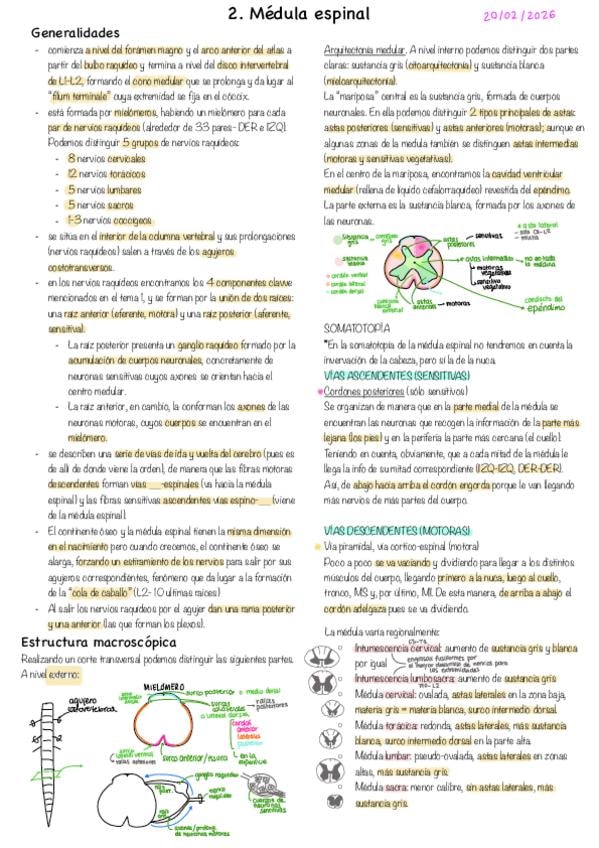 2. Médula espinal
20/02/2026
Generalidades
- comienza a nivel del forámen magno y el arco anterior del atlas a
partir del bulbo raquídeo y termina a nivel del disco intervertebral
de L1-L2, formando el cono medular que se prolonga y da lugar al
"filum terminale" cuya extremidad se fija en el cóccix.
- está formada por mielómeros, habiendo un mielómero para cada
par de nervios raquídeos (alrededor de 33 pares- DER e IZQ).
Podemos distinguir 5 grupos de nervios raquídeos:
- 8 nervios cervicales
- 12 nervios torácicos
- 5 nervios lumbares
- 5 nervios sacros
- 1-3 nervios coccígeos
- se sitúa en el interior de la columna vertebral y sus prolongaciones
(nervios raquídeos) salen a través de los agujeros
costotransversos.
- en los nervios raquídeos encontramos los 4 componentes clave
mencionados en el tema 1, y se forman por la unión de dos raíces:
una raíz anterior (eferente, motora) y una raíz posterior (aferente,
sensitiva).
- La raíz posterior presenta un ganglio raquídeo formado por la
acumulación de cuerpos neuronales, concretamente de
neuronas sensitivas cuyos axones se orientan hacia el
centro medular.
- La raíz anterior, en cambio, la conforman los axones de las
neuronas motoras, cuyos cuerpos se encuentran en el
mielómero.
- se describen una serie de vías de ida y vuelta del cerebro (pues es
de allí de donde viene la orden), de manera que las fibras motoras
descendentes forman vías ___-espinales (va hacia la médula
espinal) y las fibras sensitivas ascendentes vías espino-___ (viene
de la médula espinal).
- El continente óseo y la médula espinal tienen la misma dimensión
en el nacimiento pero cuando crecemos, el continente óseo se
alarga, forzando un estiramiento de los nervios para salir por sus
agujeros correspondientes, fenómeno que da lugar a la formación
de la "cola de caballo" (L2- 10 ultimas raíces)
- Al salir los nervios raquídeos por el agujer dan una rama posterior
y una anterior (las que forman los plexos).
Estructura macroscópica
Realizando un corte transversal podemos distinguir las siguientes partes.
A nivel externo:
MIELÓMERO
surco posterior = medio dorsal
raíces posteriores
o lateral dorsal
cordón
anterior
lateral
posterior
surco lateral ventral
surco anterior/fisura
en la superficie
ganglio raquídeo
nervio raquídeo
cuerpos de neuronas sensitivas
Arquitectonía medular. A nivel interno podemos distinguir dos partes
claras: sustancia gris (citoarquitectonía) y sustancia blanca
(mieloarquitectonía).
La "mariposa" central es la sustancia gris, formada de cuerpos
neuronales. En ella podemos distinguir 2 tipos principales de astas:
astas posteriores (sensitivas) y astas anteriores (motoras); aunque en
algunas zonas de la medula también se distinguen astas intermedias
(motoras y sensitivas vegetativas).
En el centro de la mariposa, encontramos la cavidad ventricular
medular (rellena de líquido cefalorraquídeo) revestida del epéndimo.
La parte externa es la sustancia blanca, formada por los axones de
las neuronas.
sustancia gris
astas posteriores
sensitivas
asta lateral
astas intermedias
no en toda la médula
motoras vegetativas
sensitiva vegetativas
sustancia blanca
cordón ventral
cordón lateral
cordón dorsal
astas anteriores
motoras
conducto del
epéndimo
SOMATOTOPÍA
*En la somatotopía de la médula espinal no tendremos en cuenta la
inervación de la cabeza, pero sí la de la nuca.
VÍAS ASCENDENTES (SENSITIVAS)
Cordones posteriores (sólo sensitivos)
Se organizan de manera que en la parte medial de la médula se
encuentran las neuronas que recogen la información de la parte más
lejana (los pies) y en la periferia la parte más cercana (el cuello).
Teniendo en cuenta, obviamente, que a cada mitad de la médula le
llega la info de su mitad correspondiente (IZQ-IZQ, DER-DER).
Así, de abajo hacia arriba el cordón engorda porque le van llegando
más nervios de más partes del cuerpo.
VÍAS DESCENDENTES (MOTORAS)
Vía piramidal, vía cortico-espinal (motora)
Poco a poco se va vaciando y dividiendo para llegar a los distintos
músculos del cuerpo, llegando primero a la nuca, luego al cuello,
tronco, MS y, por último, MI. De esta manera, de arriba a abajo el
cordón adelgaza pues se va dividiendo.
La médula varía regionalmente:
Intumescencia cervical: aumento de sustancia gris y blanca
por igual
Intumescencia lumbosacra: aumento de sustancia gris
Médula cervical: ovalada, astas laterales en la zona baja,
materia gris = materia blanca, surco intermedio dorsal
Médula torácica: redonda, astas laterales, más sustancia
blanca, surco intermedio dorsal en la parte alta
Médula lumbar: pseudo-ovalada, astas laterales en zonas
altas, más sustancia gris.
Médula sacra: menor calibre, sin astas laterales, más
sustancia gris.